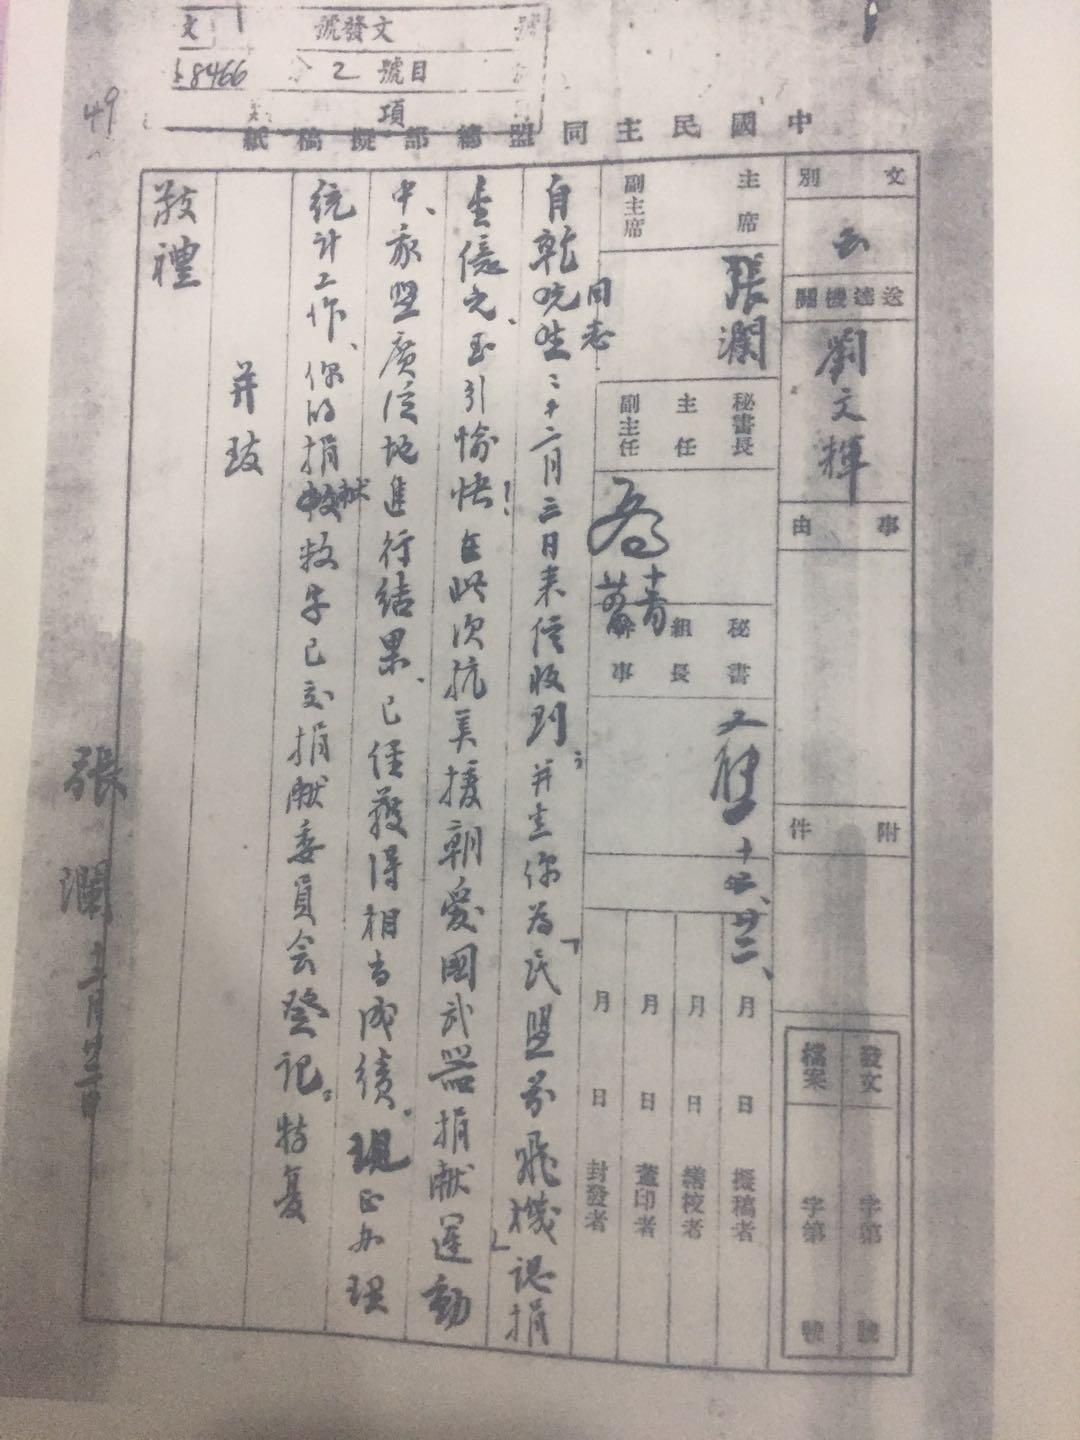 文
號發文
號
8466
2 號目
項
49
紙稿擬部總盟同主民國中
文別
函
送達機關
劉文輝
事由
附件
發文 字第 號
檔案 字第 號
主席
副主席
張瀾
秘書長
主任
副主任
秘書
組長
幹事
十 廿二、
月 日 擬稿者
月 日 繕校者
月 日 蓋印者
月 日 封發者
自乾 同志
十二月三日来信收到；并 你为「民盟号飛機」認捐
壹億元、至引愉快！在此次抗美援朝愛國武器捐献運動
中、我盟廣泛地進行结果、已经获得相当成绩。現正办理
統计工作、你的捐献 已交捐献委員会登记。特复
并致
敬禮
張瀾 十二月廿 日